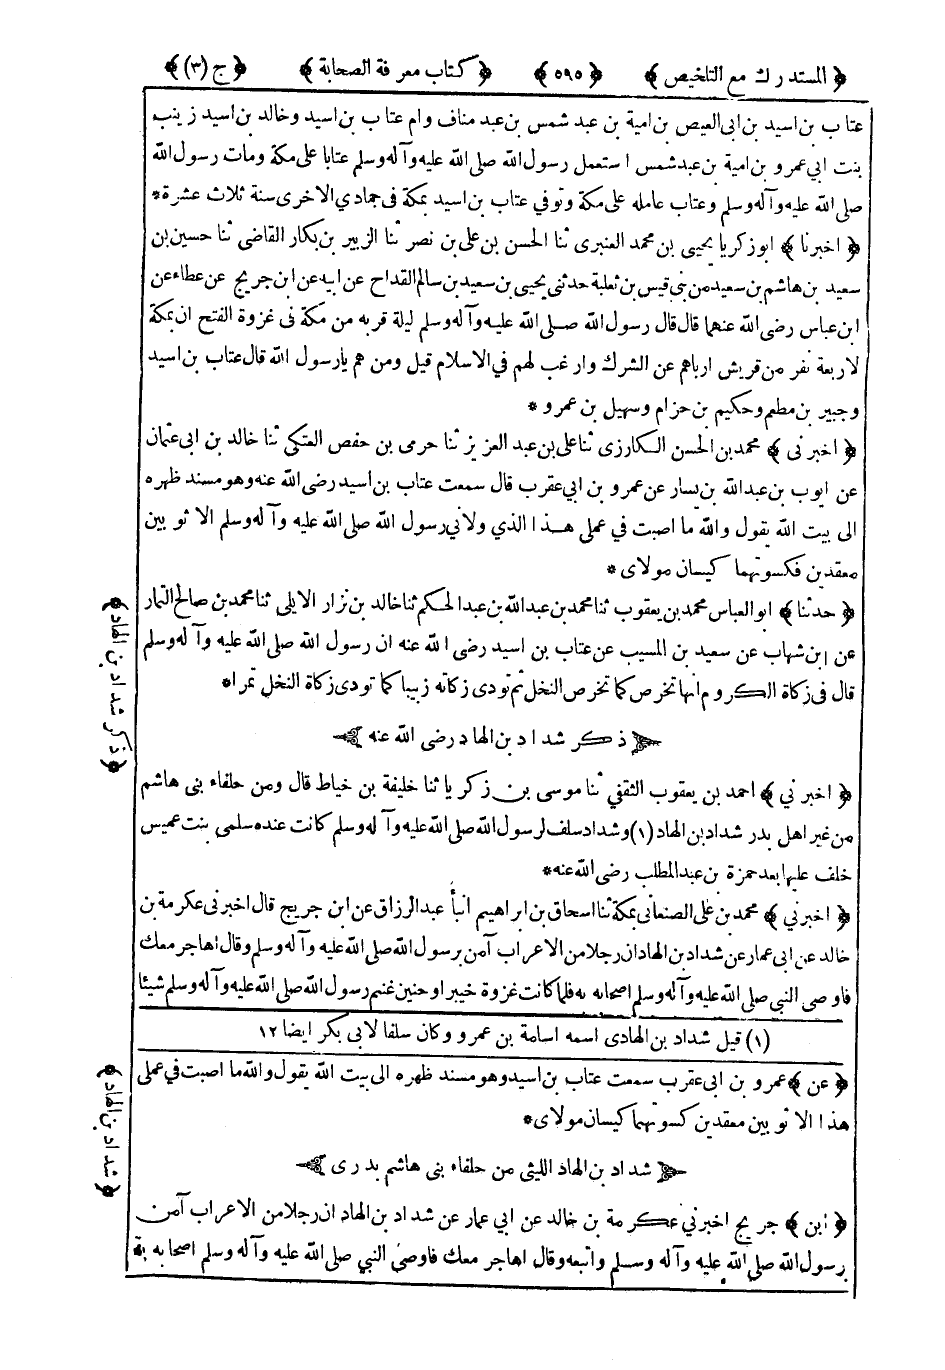 ﴿ المستدرك مع التلخيص ﴾ ﴿ ٥٩٥ ﴾ ﴿ كتاب معرفة الصحابة ﴾ ﴿ ج (٣) ﴾
عتاب بن اسيد بن ابى العيص بن امية بن عبد شمس بن عبد مناف وام عتاب بن اسيد وخالد بن اسيد زينب
بنت ابي عمرو بن امية بن عبد شمس استعمل رسول الله صلى الله عليه وآله وسلم عتابا على مكة ومات رسول الله
صلى الله عليه وآله وسلم وعتاب عامله على مكة وتوفي عتاب بن اسيد بمكة فى جمادي الاخرى سنة ثلاث عشرة *
﴿ اخبرنا ﴾ ابو زكريا يحيى بن محمد العنبرى ثنا الحسن بن على بن نصر ثنا الزبير بن بكار القاضى ثنا حسين بن
سعيد بن هاشم بن سعيد من بنى قيس بن ثعلبة حدثنى يحيى بن سعيد بن سالم القداح عن ابيه عن ابن جريج عن عطاء عن
ابن عباس رضى الله عنهما قال قال رسول الله صلى الله عليه وآله وسلم ليلة قربه من مكة فى غزوة الفتح ان بمكة
لاربعة نفر من قريش ارباهم عن الشرك وارغب لهم في الاسلام قيل ومن هم يا رسول الله قال عتاب بن اسيد
وجبير بن مطعم وحكيم بن حزام وسهيل بن عمرو *
﴿ اخبرنى ﴾ محمد بن الحسن الكارزى ثنا على بن عبد العزيز ثنا حرمى بن حفص العتكى ثنا خالد بن ابى عثمان
عن ايوب بن عبدالله بن يسار عن عمرو بن ابي عقرب قال سمعت عتاب بن اسيد رضى الله عنه وهو مسند ظهره
الى بيت الله يقول والله ما اصبت في عملى هذا الذي ولاني رسول الله صلى الله عليه وآله وسلم الا ثوبين
معقدين فكسوتهما كيسان مولاى *
﴿ حدثنا ﴾ ابو العباس محمد بن يعقوب ثنا محمد بن عبدالله بن عبدالحكم ثنا خالد بن نزار الايلى ثنا محمد بن صالح التمار
عن ابن شهاب عن سعيد بن المسيب عن عتاب بن اسيد رضى الله عنه ان رسول الله صلى الله عليه وآله وسلم
قال فى زكاة الكروم انها تخرص كما تخرص النخل ثم تودى زكاته زبيبا كما تودى زكاة النخل تمرا *
ذكر شداد بن الهاد رضى الله عنه
﴿ ذكر شداد بن الهاد ﴾
﴿ اخبرني ﴾ احمد بن يعقوب الثقفي ثنا موسى بن زكريا ثنا خليفة بن خياط قال ومن حلفاء بنى هاشم
من غير اهل بدر شداد بن الهاد (١) وشداد سلف لرسول الله صلى الله عليه وآله وسلم كانت عنده سلمى بنت عميس
خلف عليها بعد حمزة بن عبدالمطلب رضى الله عنه *
﴿ اخبرني ﴾ محمد بن على الصنعانى بمكة ثنا اسحاق بن ابراهيم انبأ عبدالرزاق عن ابن جريج قال اخبرنى عكرمة بن
خالد عن ابى عمار عن شداد بن الهاد ان رجلا من الاعراب آمن برسول الله صلى الله عليه وآله وسلم وقال اهاجر معك
فاوصى النبي صلى الله عليه وآله وسلم اصحابه به فلما كانت غزوة خيبر او حنين غنم رسول الله صلى الله عليه وآله وسلم شيئا
(١) قيل شداد بن الهادى اسمه اسامة بن عمرو وكان سلفا لابي بكر ايضا ١٢
﴿ عن ﴾ عمرو بن ابى عقرب سمعت عتاب بن اسيد وهو مسند ظهره الى بيت الله يقول والله ما اصبت في عملى
هذا الا ثوبين معقدين كسوتهما كيسان مولاى *
شداد بن الهاد الليثى من حلفاء بنى هاشم بدرى
﴿ شداد بن الهاد ﴾
﴿ ابن ﴾ جريج اخبرني عكرمة بن خالد عن ابي عمار عن شداد بن الهاد ان رجلا من الاعراب آمن
برسول الله صلى الله عليه وآله وسلم واتبعه وقال اهاجر معك فاوصى النبي صلى الله عليه وآله وسلم اصحابه به